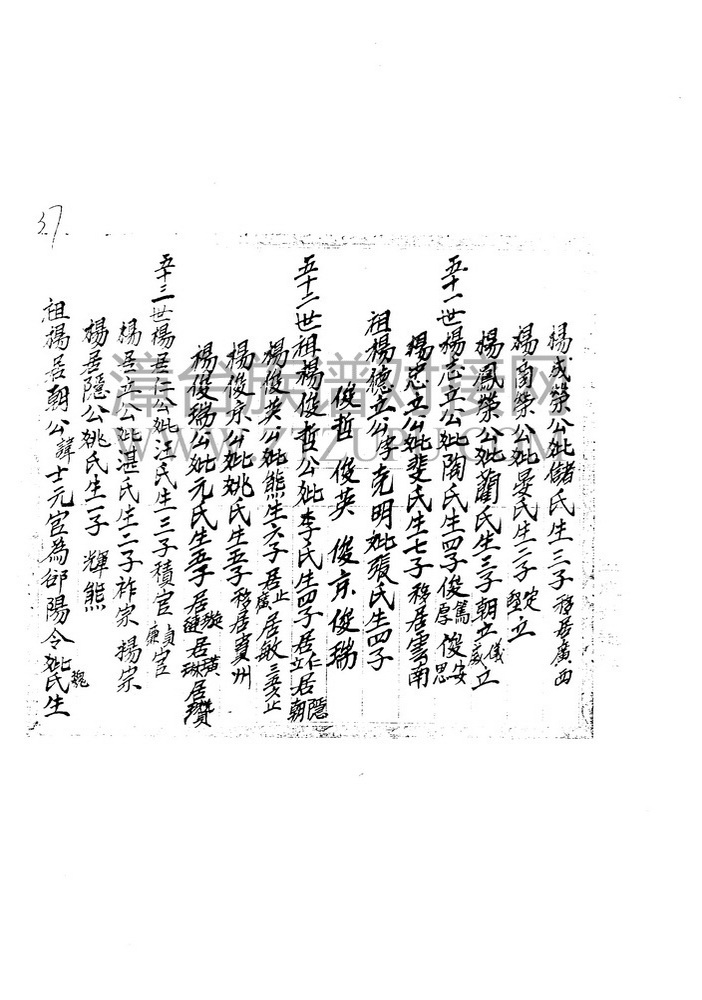 37
楊成榮公妣儲氏生三子移居廣西
楊商榮公妣晏氏生二子堅立定立
楊鳳榮公妣藺氏生三子朝立儀立威立
五十一世楊志立公妣陶氏生四子俊篤俊厚俊安俊思
楊忠立公妣斐氏生七子移居雲南
祖楊德立公字克明妣張氏生四子
俊哲 俊英 俊京 俊瑞
五十二世祖楊俊哲公妣李氏生四子居仁居立居隱居朝
楊俊英公妣熊生六子居止居廣居敏三五六止
楊俊京公妣姚氏生五子移居夔州
楊俊瑞公妣元氏生五子居璇居璉居璜居琳居瓚
五十三世楊居仁公妣汪氏生三子積官貞官廉官
楊居立公妣湛氏生二子祚宗 揚宗
楊居隱公姚氏生一子 輝熊
祖楊居朝公諱士元官為郃陽令妣魏氏生
漳台族譜对接网
WWW.ZTZUPU.COM